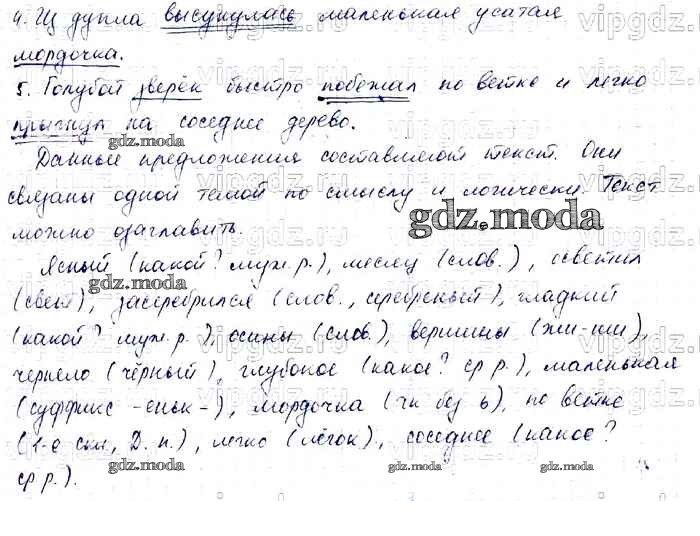 4. Из дупла высунулась маленькая усатая
мордочка.
5. Голубой зверёк быстро побежал по ветке и легко
прыгнул на соседнее дерево.
gdz.moda
Данные предложения составляют текст. Они
связаны одной темой по смыслу и логически. Текст
gdz.moda
можно озаглавить.
Ясный (какой? муж. р.), месяц (слов.), осветил
gdz.moda
(свет), засеребрился (слов., серебряный), гладкий
(какой? муж. р.), осины (слов.), вершины (жи-ши),
чернело (чёрный), глубокое (какое? ср р.), маленькая
(суффикс -еньк-), мордочка (чк без ь), по ветке
(1-е скл, Д. п.), легко (лёгок), соседнее (какое?
gdz.moda gdz.moda
ср р.).